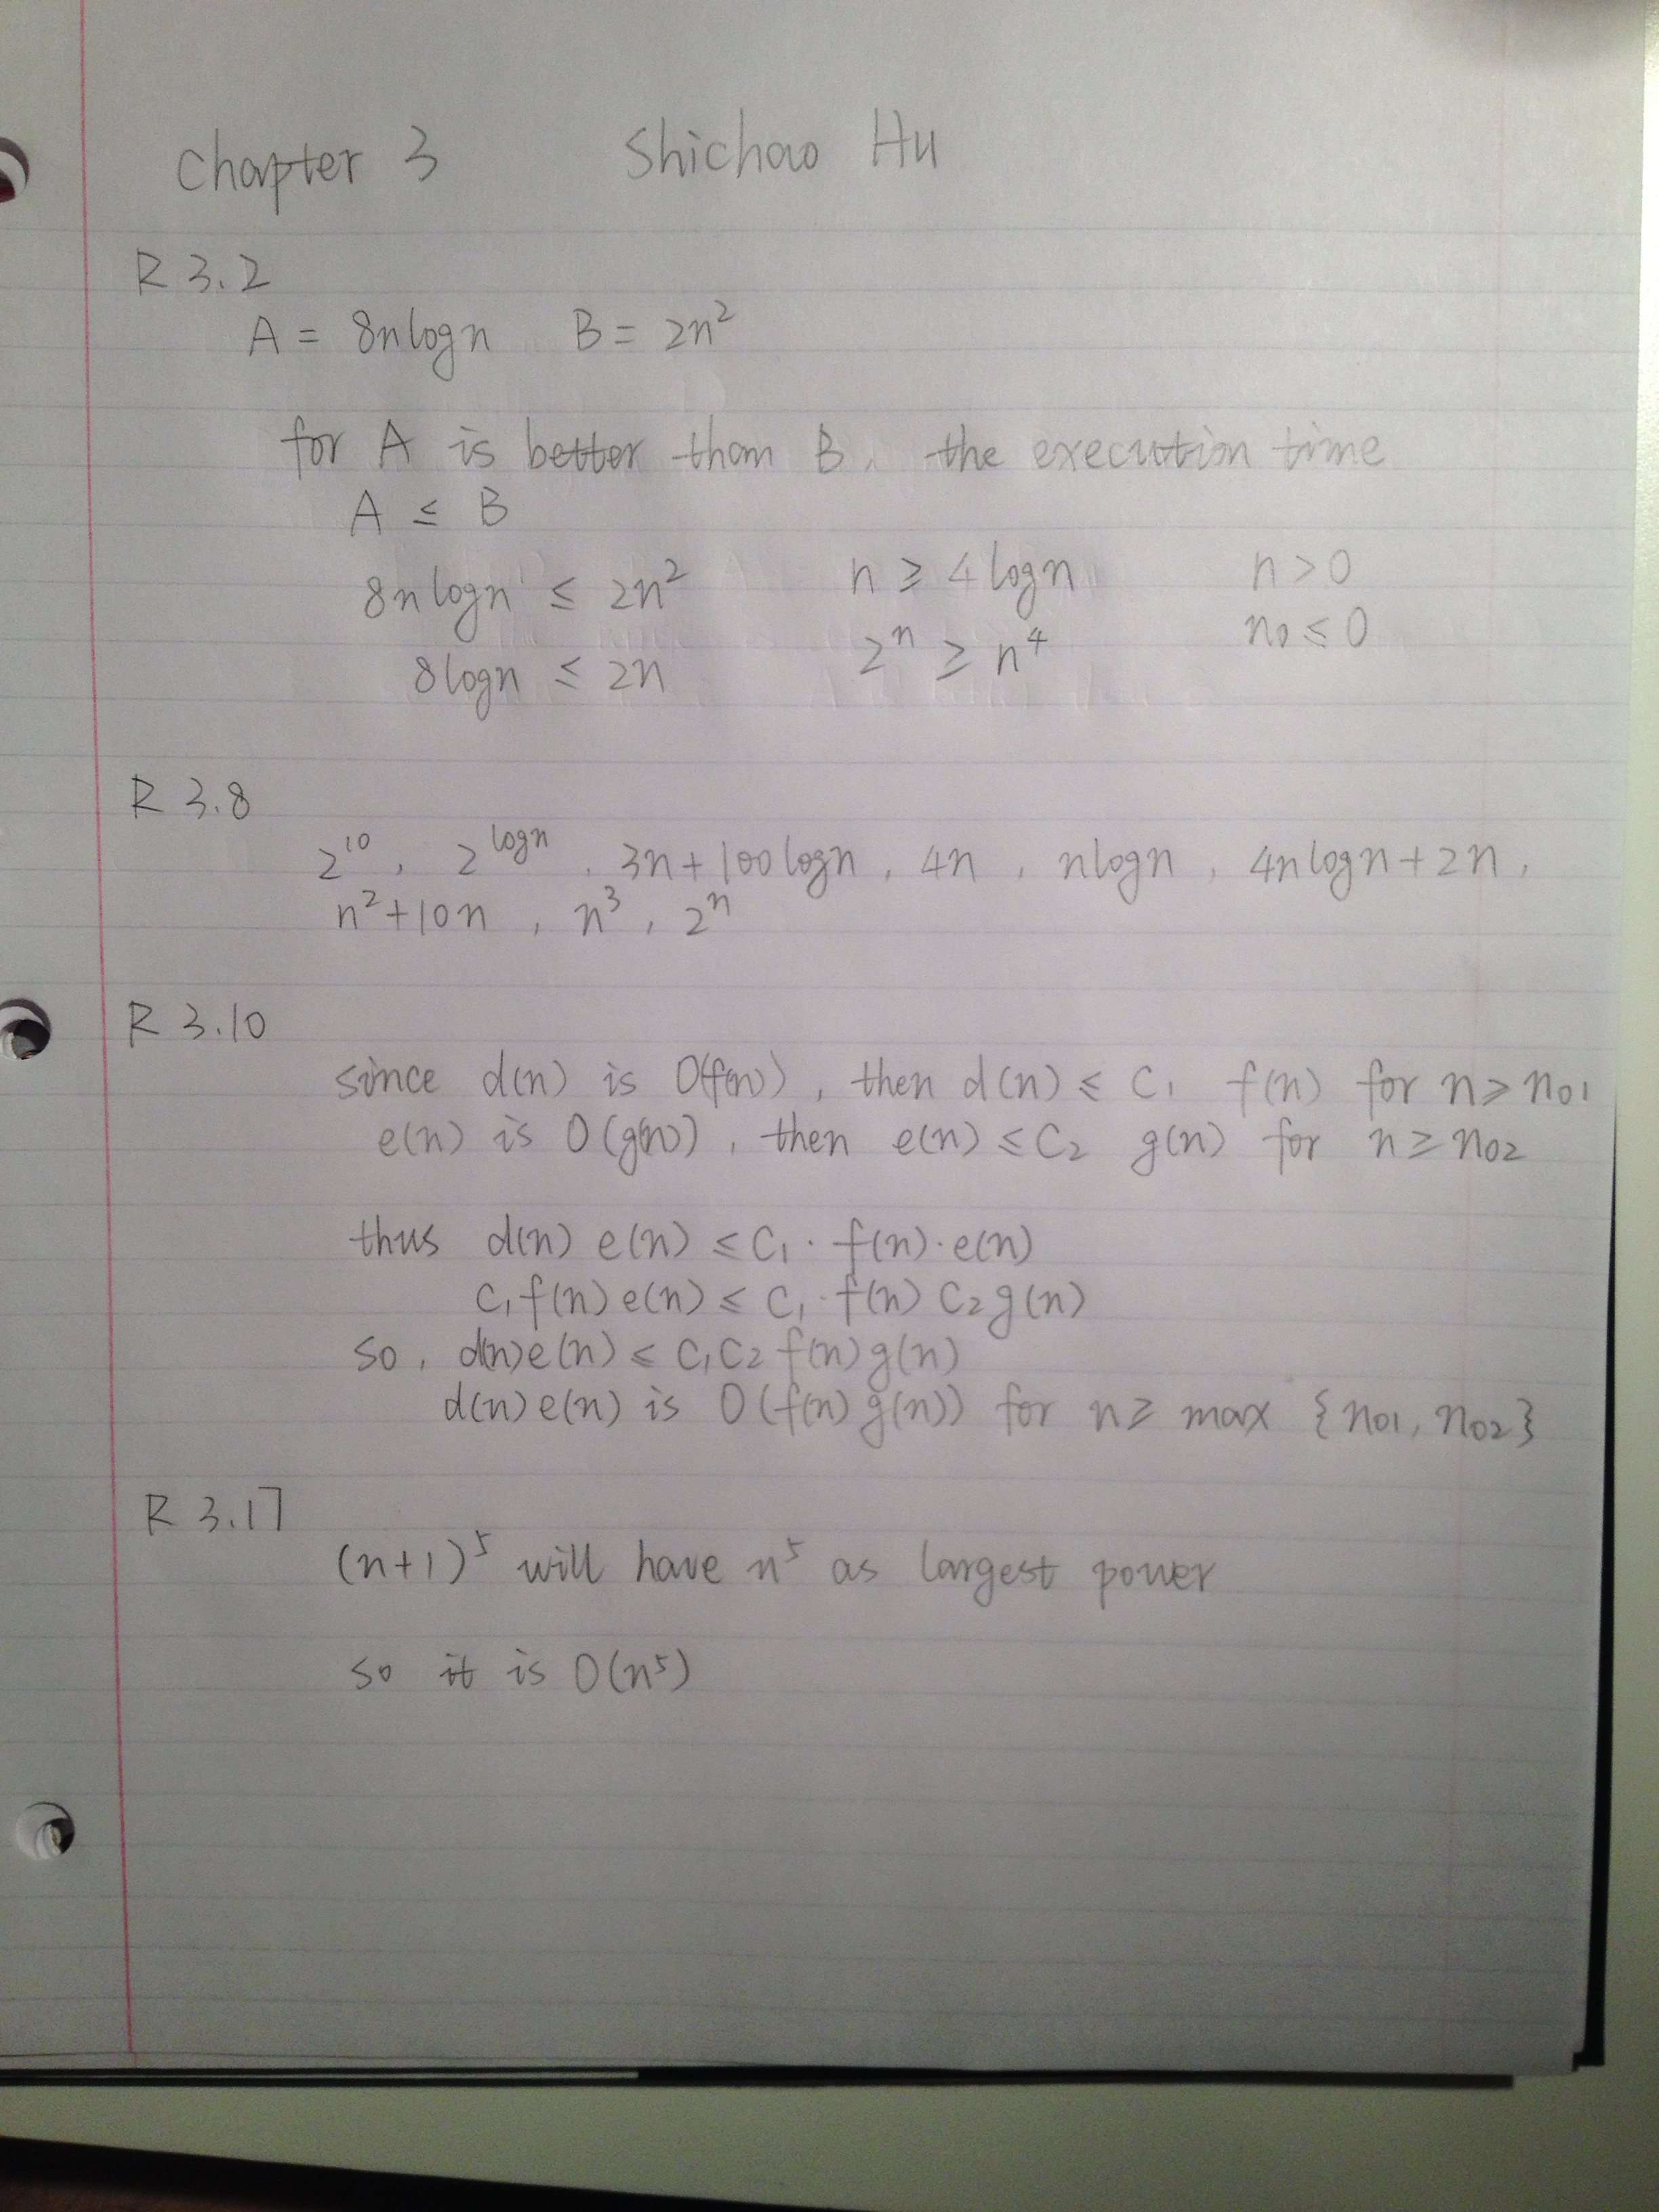 Chapter 3 Shichao Hu
R 3.2
A = 8nlogn B = 2n²
for A is better than B, the execution time
A ≤ B
8nlogn ≤ 2n² n ≥ 4logn n>0
8logn ≤ 2n 2ⁿ ≥ n⁴ n₀ ≤ 0
R 3.8
2¹⁰, 2^logn, 3n+100logn, 4n, nlogn, 4nlogn+2n,
n²+10n, n³, 2ⁿ
R 3.10
since d(n) is O(f(n)), then d(n) ≤ C₁ f(n) for n ≥ n₀₁
e(n) is O(g(n)), then e(n) ≤ C₂ g(n) for n ≥ n₀₂
thus d(n) e(n) ≤ C₁·f(n)·e(n)
C₁f(n)e(n) ≤ C₁·f(n)C₂g(n)
so, d(n)e(n) ≤ C₁C₂f(n)g(n)
d(n)e(n) is O(f(n)g(n)) for n ≥ max {n₀₁, n₀₂}
R 3.17
(n+1)⁵ will have n⁵ as largest power
so it is O(n⁵)